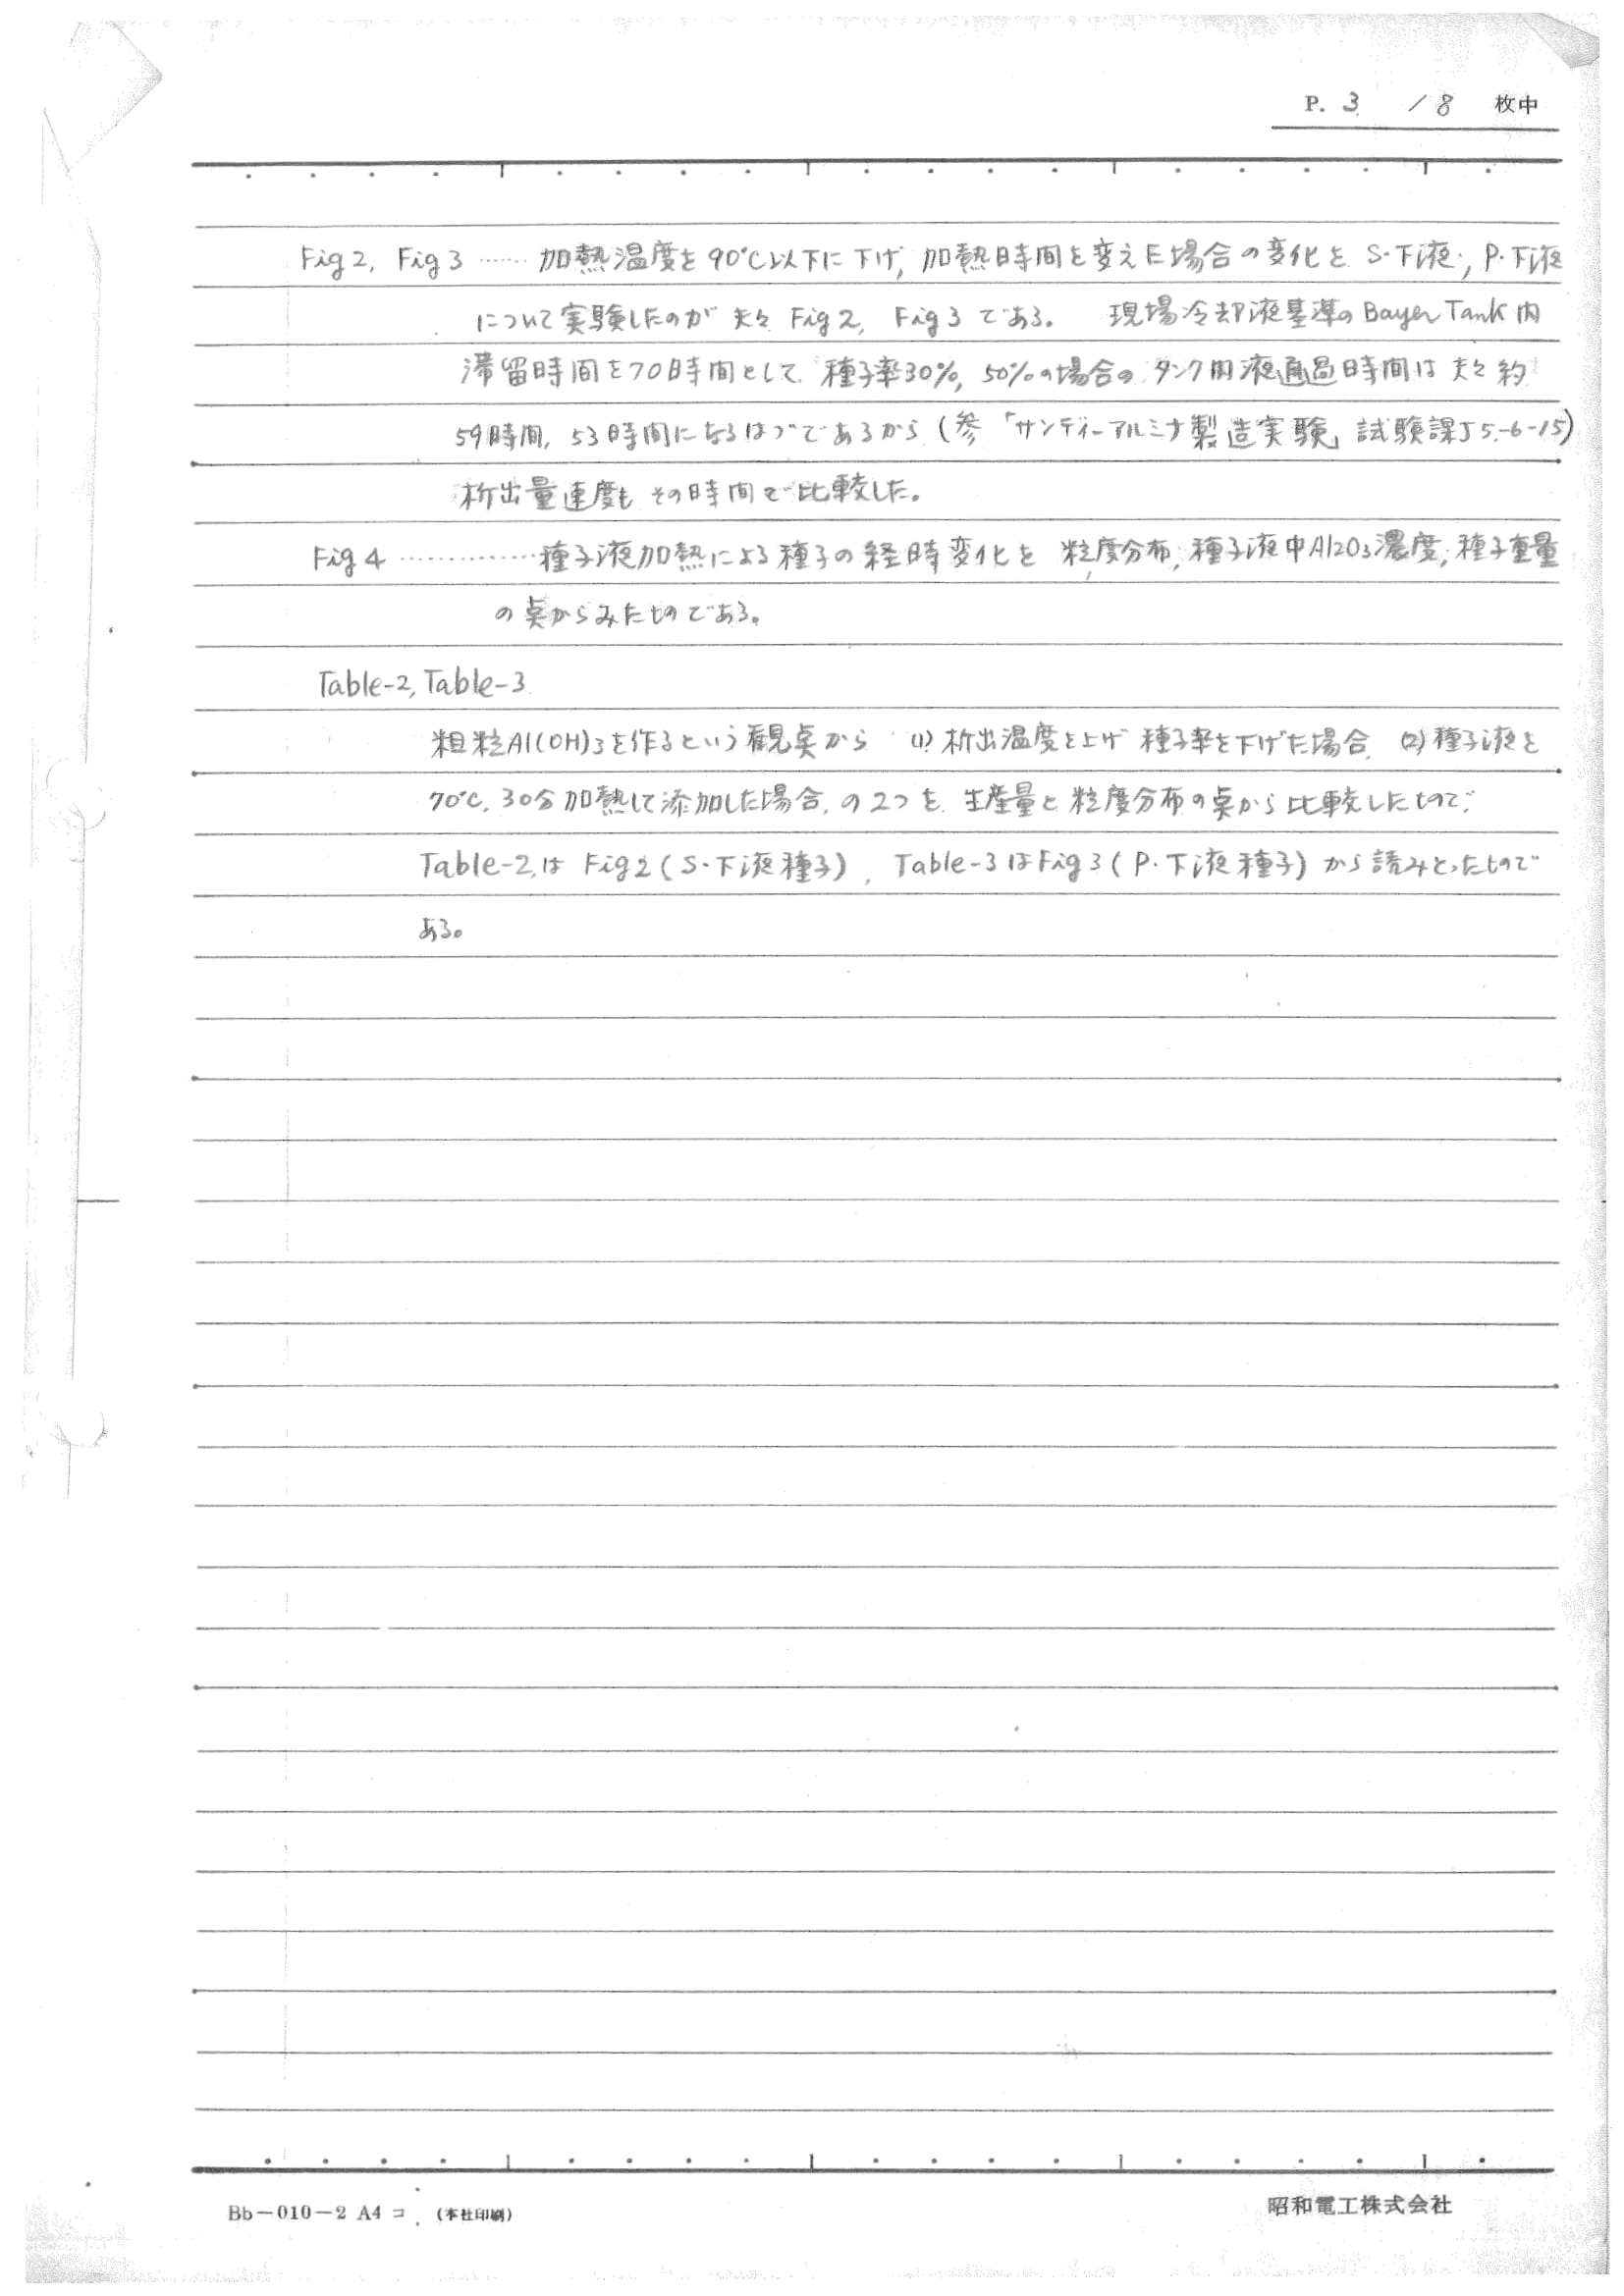 P. 3 / 8 枚中
Fig 2, Fig 3 …… 加熱温度を90℃以下に下げ, 加熱時間を変えた場合の変化を S・下液, P・下液
について実験したのが 夫々 Fig 2, Fig 3 である。 現場冷却液基準の Bayer Tank 内
滞留時間を70時間として 種子率30%, 50%の場合の タンク内液通過時間は 夫々 約
59時間, 53時間になるはづであるから (参「サンディーアルミナ製造実験」試験課 J5.-6-15)
析出量速度も その時間で比較した。
Fig 4 ………… 種子液加熱による種子の経時変化を 粒度分布, 種子液中Al2O3濃度, 種子重量
の点からみたものである。
Table-2, Table-3
粗粒Al(OH)3を作るという観点から (1) 析出温度を上げ 種子率を下げた場合, (2) 種子液を
70℃, 30分加熱して添加した場合, の2つを 生産量と粒度分布の点から比較したもので
Table-2は Fig 2 (S・下液種子), Table-3はFig 3 (P・下液種子) から読みとったもので
ある。
Bb-010-2 A4 コ (本社印刷)
昭和電工株式会社